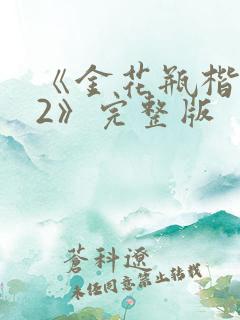 《金花瓶楷
2》完整版
蒼科遼
未经同意禁止转载